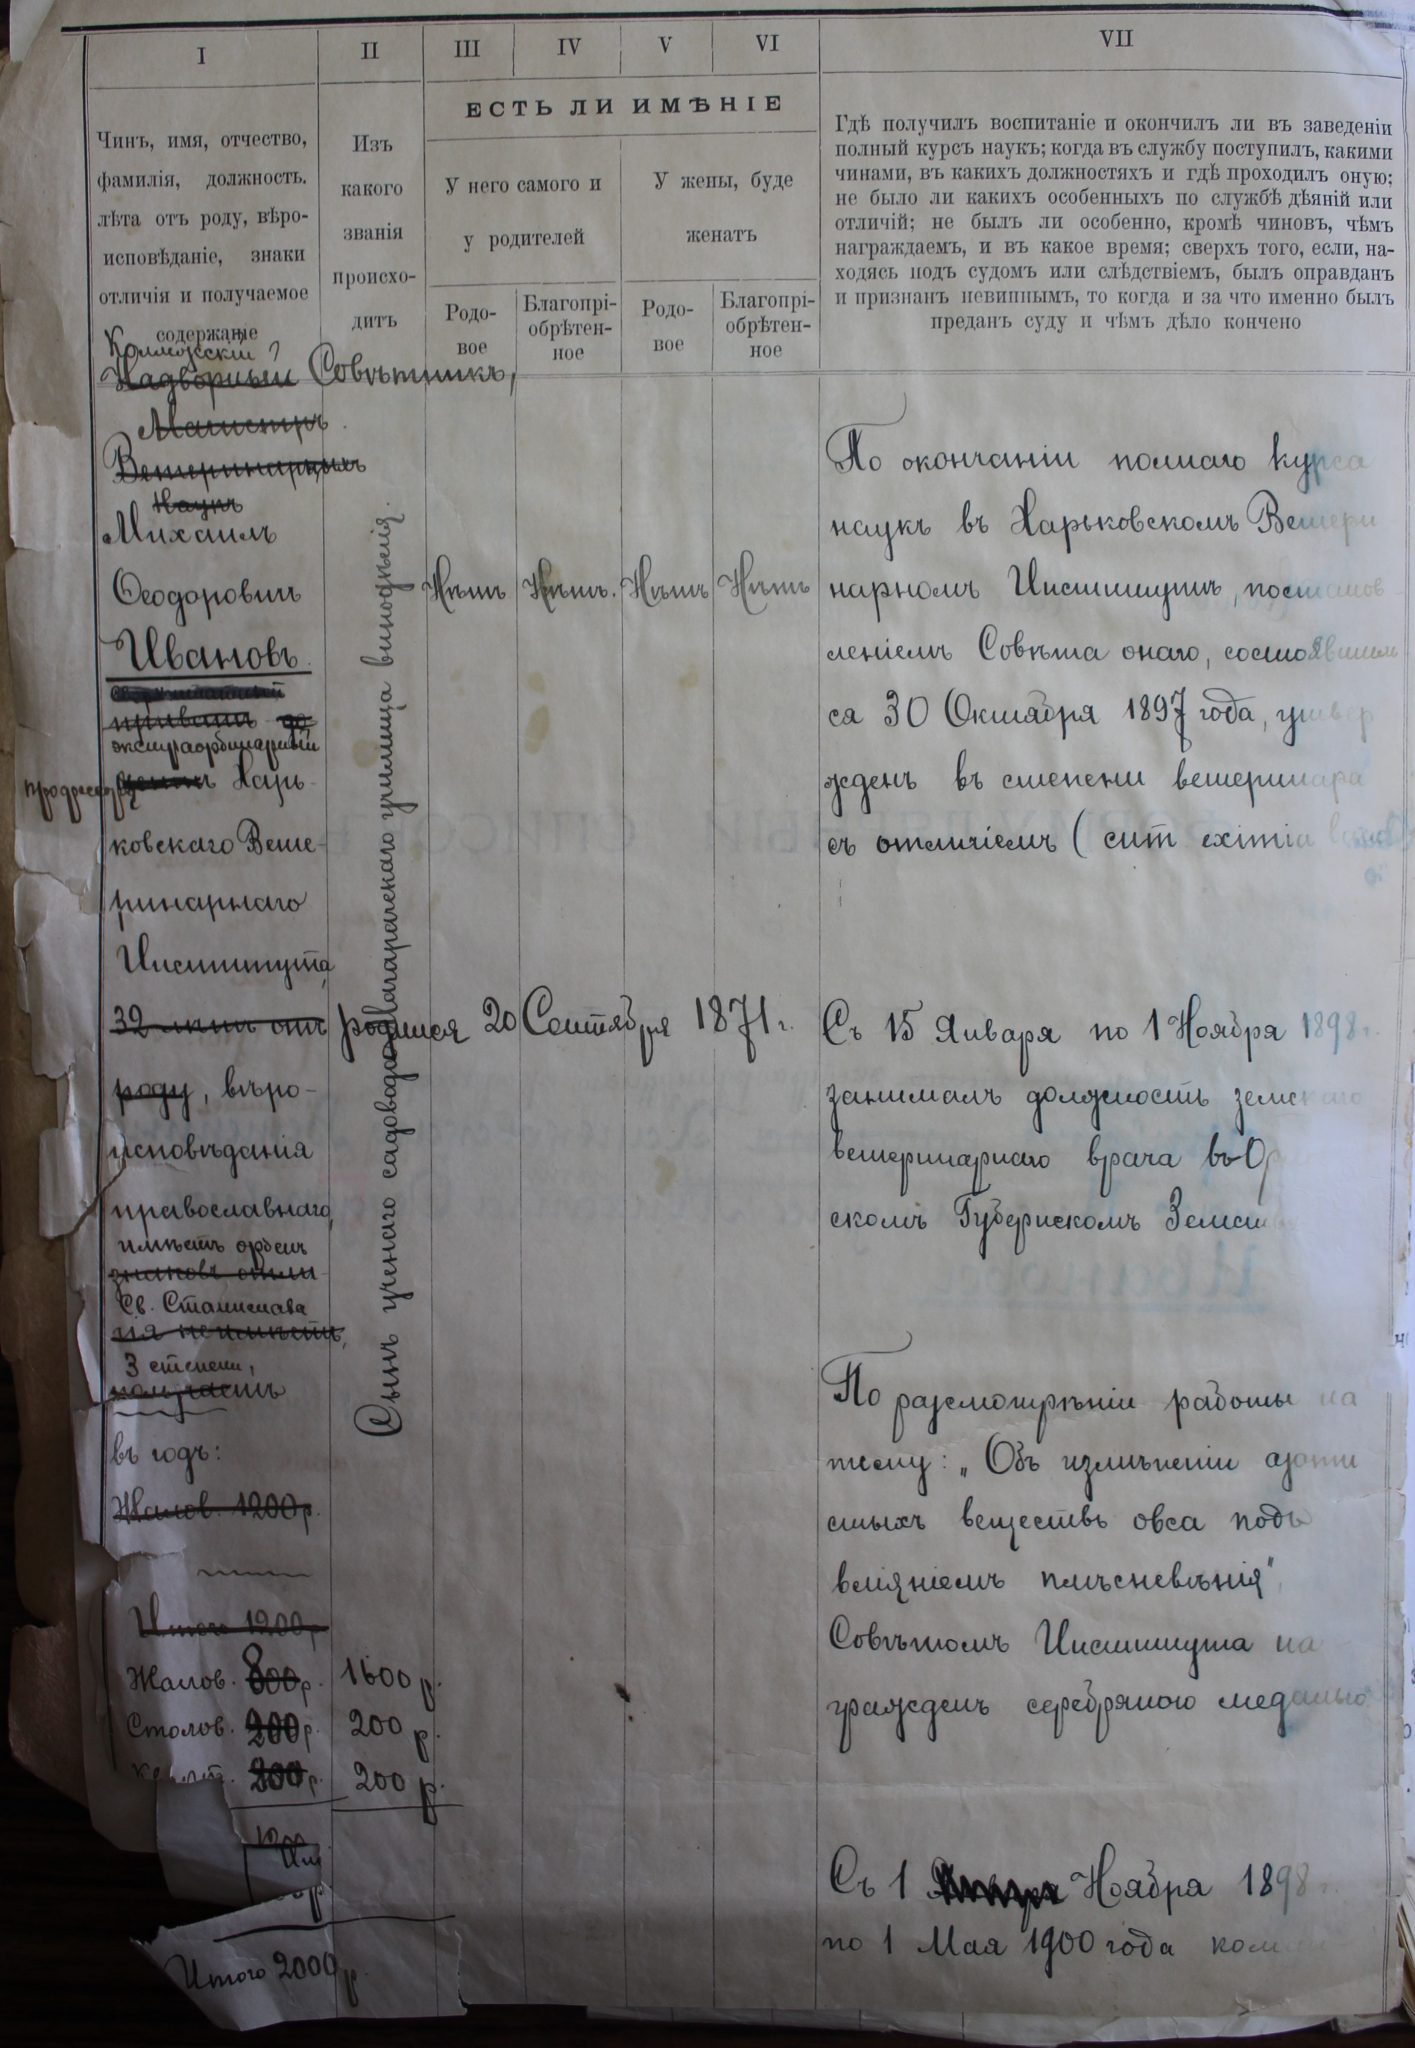 I
II
III
IV
V
VI
VII
ЕСТЬ ЛИ ИМѢНІЕ
Чинъ, имя, отчество,
фамилія, должность.
лѣта отъ роду, вѣро-
исповѣданіе, знаки
отличія и получаемое
содержаніе
Изъ
какого
званія
происхо-
дитъ
У него самого и
у родителей
У жены, буде
женатъ
Родо-
вое
Благопрі-
обрѣтен-
ное
Родо-
вое
Благопрі-
обрѣтен-
ное
Гдѣ получилъ воспитаніе и окончилъ ли въ заведеніи
полный курсъ наукъ; когда въ службу поступилъ, какими
чинами, въ какихъ должностяхъ и гдѣ проходилъ оную;
не было ли какихъ особенныхъ по службѣ дѣяній или
отличій; не былъ ли особенно, кромѣ чиновъ, чѣмъ
награждаемъ, и въ какое время; сверхъ того, если, на-
ходясь подъ судомъ или слѣдствіемъ, былъ оправданъ
и признанъ невиннымъ, то когда и за что именно былъ
преданъ суду и чѣмъ дѣло кончено
Коллежскій
Надворный Совѣтникъ,
Магистръ
Ветеринарныхъ
Наукъ
Михаилъ
Ѳеодоровичъ
Ивановъ
Сверхштатный
приватъ-до
экстраординарный
профессоръ центъ Харь-
ковскаго Вете-
ринарнаго
Института,
32 лѣтъ отъ родился 20 Сентября 1871 г.
роду, вѣро-
исповѣданія
православнаго,
имѣетъ орденъ
знаковъ отли-
Св. Станислава
чія не имѣетъ,
3 степени,
получаетъ
въ годъ:
Жалов. 1200 р.
Итого 1200 р.
Жалов. 800 р. 1600 р.
Столов. 200 р. 200 р.
200 р. 200 р.
Итого 2000 р.
Сынъ ученаго садовода Магарачскаго училища винодѣлія.
Нѣтъ Нѣтъ. Нѣтъ Нѣтъ
По окончаніи полнаго курса
наукъ въ Харьковскомъ Ветери
нарномъ Институтѣ, постанов
леніемъ Совѣта онаго, состоявшим
ся 30 Октября 1897 года, утвер
жденъ въ степени ветеринара
съ отличіемъ (cum eximia
Съ 15 Января по 1 Ноября 1898 г.
занималъ должность земскаго
ветеринарнаго врача въ Ор
скомъ Губернскомъ Земст
По разсмотрѣніи работы на
тему: „Объ измѣненіи азоти
стыхъ веществъ овса подъ
вліяніемъ плѣсневѣнія“,
Совѣтомъ Института на
гражденъ серебряною медалью
Съ 1 Ноября 1898 г.
по 1 Мая 1900 года ком